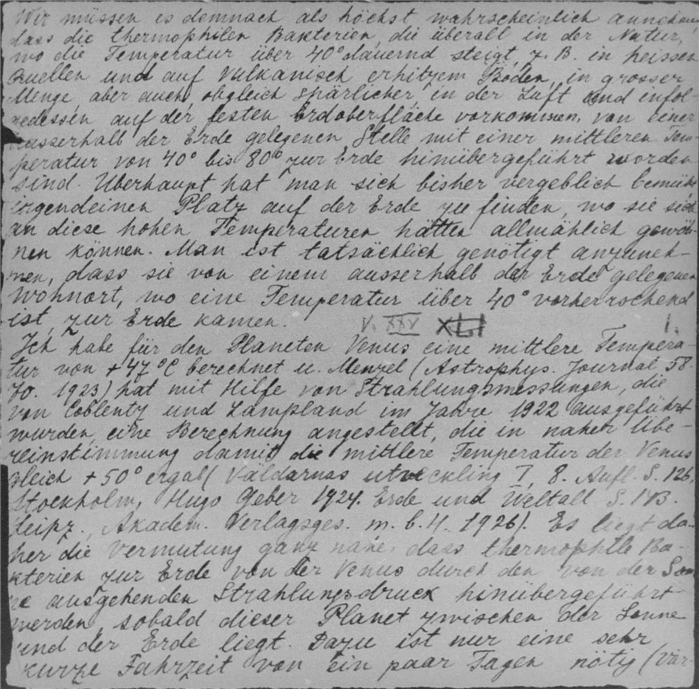 Wir müssen es demnach als höchst wahrscheinlich annehmen,
dass die thermophilen Bakterien, die überall in der Natur,
wo die Temperatur über 40° dauernd steigt, z. B. in heissen
Quellen und auf vulkanisch erhitzem Boden, in grosser
Menge, aber auch, obgleich spärlicher in der Luft und infol-
gedessen auf der festen Erdoberfläche vorkommen, von einer
ausserhalb der Erde gelegenen Stelle mit einer mittleren Tem-
peratur von 40° bis 80° zur Erde hinübergeführt worden
sind. Überhaupt hat man sich bisher vergeblich bemüht
irgendeinen Platz auf der Erde zu finden, wo sie sich
an diese hohen Temperaturen hätten allmählich gewöh-
nen können. Man ist tatsächlich genötigt anzuneh-
men, dass sie von einem ausserhalb der Erde gelegenen
Wohnort, wo eine Temperatur über 40° vorherrschend
ist, zur Erde kamen. V. XXV XLI 1.
Ich habe für den Planeten Venus eine mittlere Tempera-
tur von +47°C berechnet u. Menzel (Astrophys. Journal 58.
70. 1923) hat mit Hilfe von Strahlungsmessungen, die
von Coblentz und Lampland im Jahre 1922 ausgeführt
wurden, eine Berechnung angestellt, die in naher Übe-
reinstimmung damit die mittlere Temperatur der Venus
gleich +50° ergab (Världarnas utveckling I, 8. Aufl. S. 126,
Stockholm, Hugo Geber 1924. Erde und Weltall S.
Leipz., Akadem. Verlagsges. m. b. H. 1926). Es liegt da-
her die Vermutung ganz nahe, dass thermophile Ba-
kterien zur Erde von der Venus durch den von der Son-
ne ausgehenden Strahlungsdruck hinübergeführt
werden, sobald dieser Planet zwischen der Sonne
und der Erde liegt. Dazu ist nur eine sehr
kurze Fahrzeit von ein paar Tagen nötig